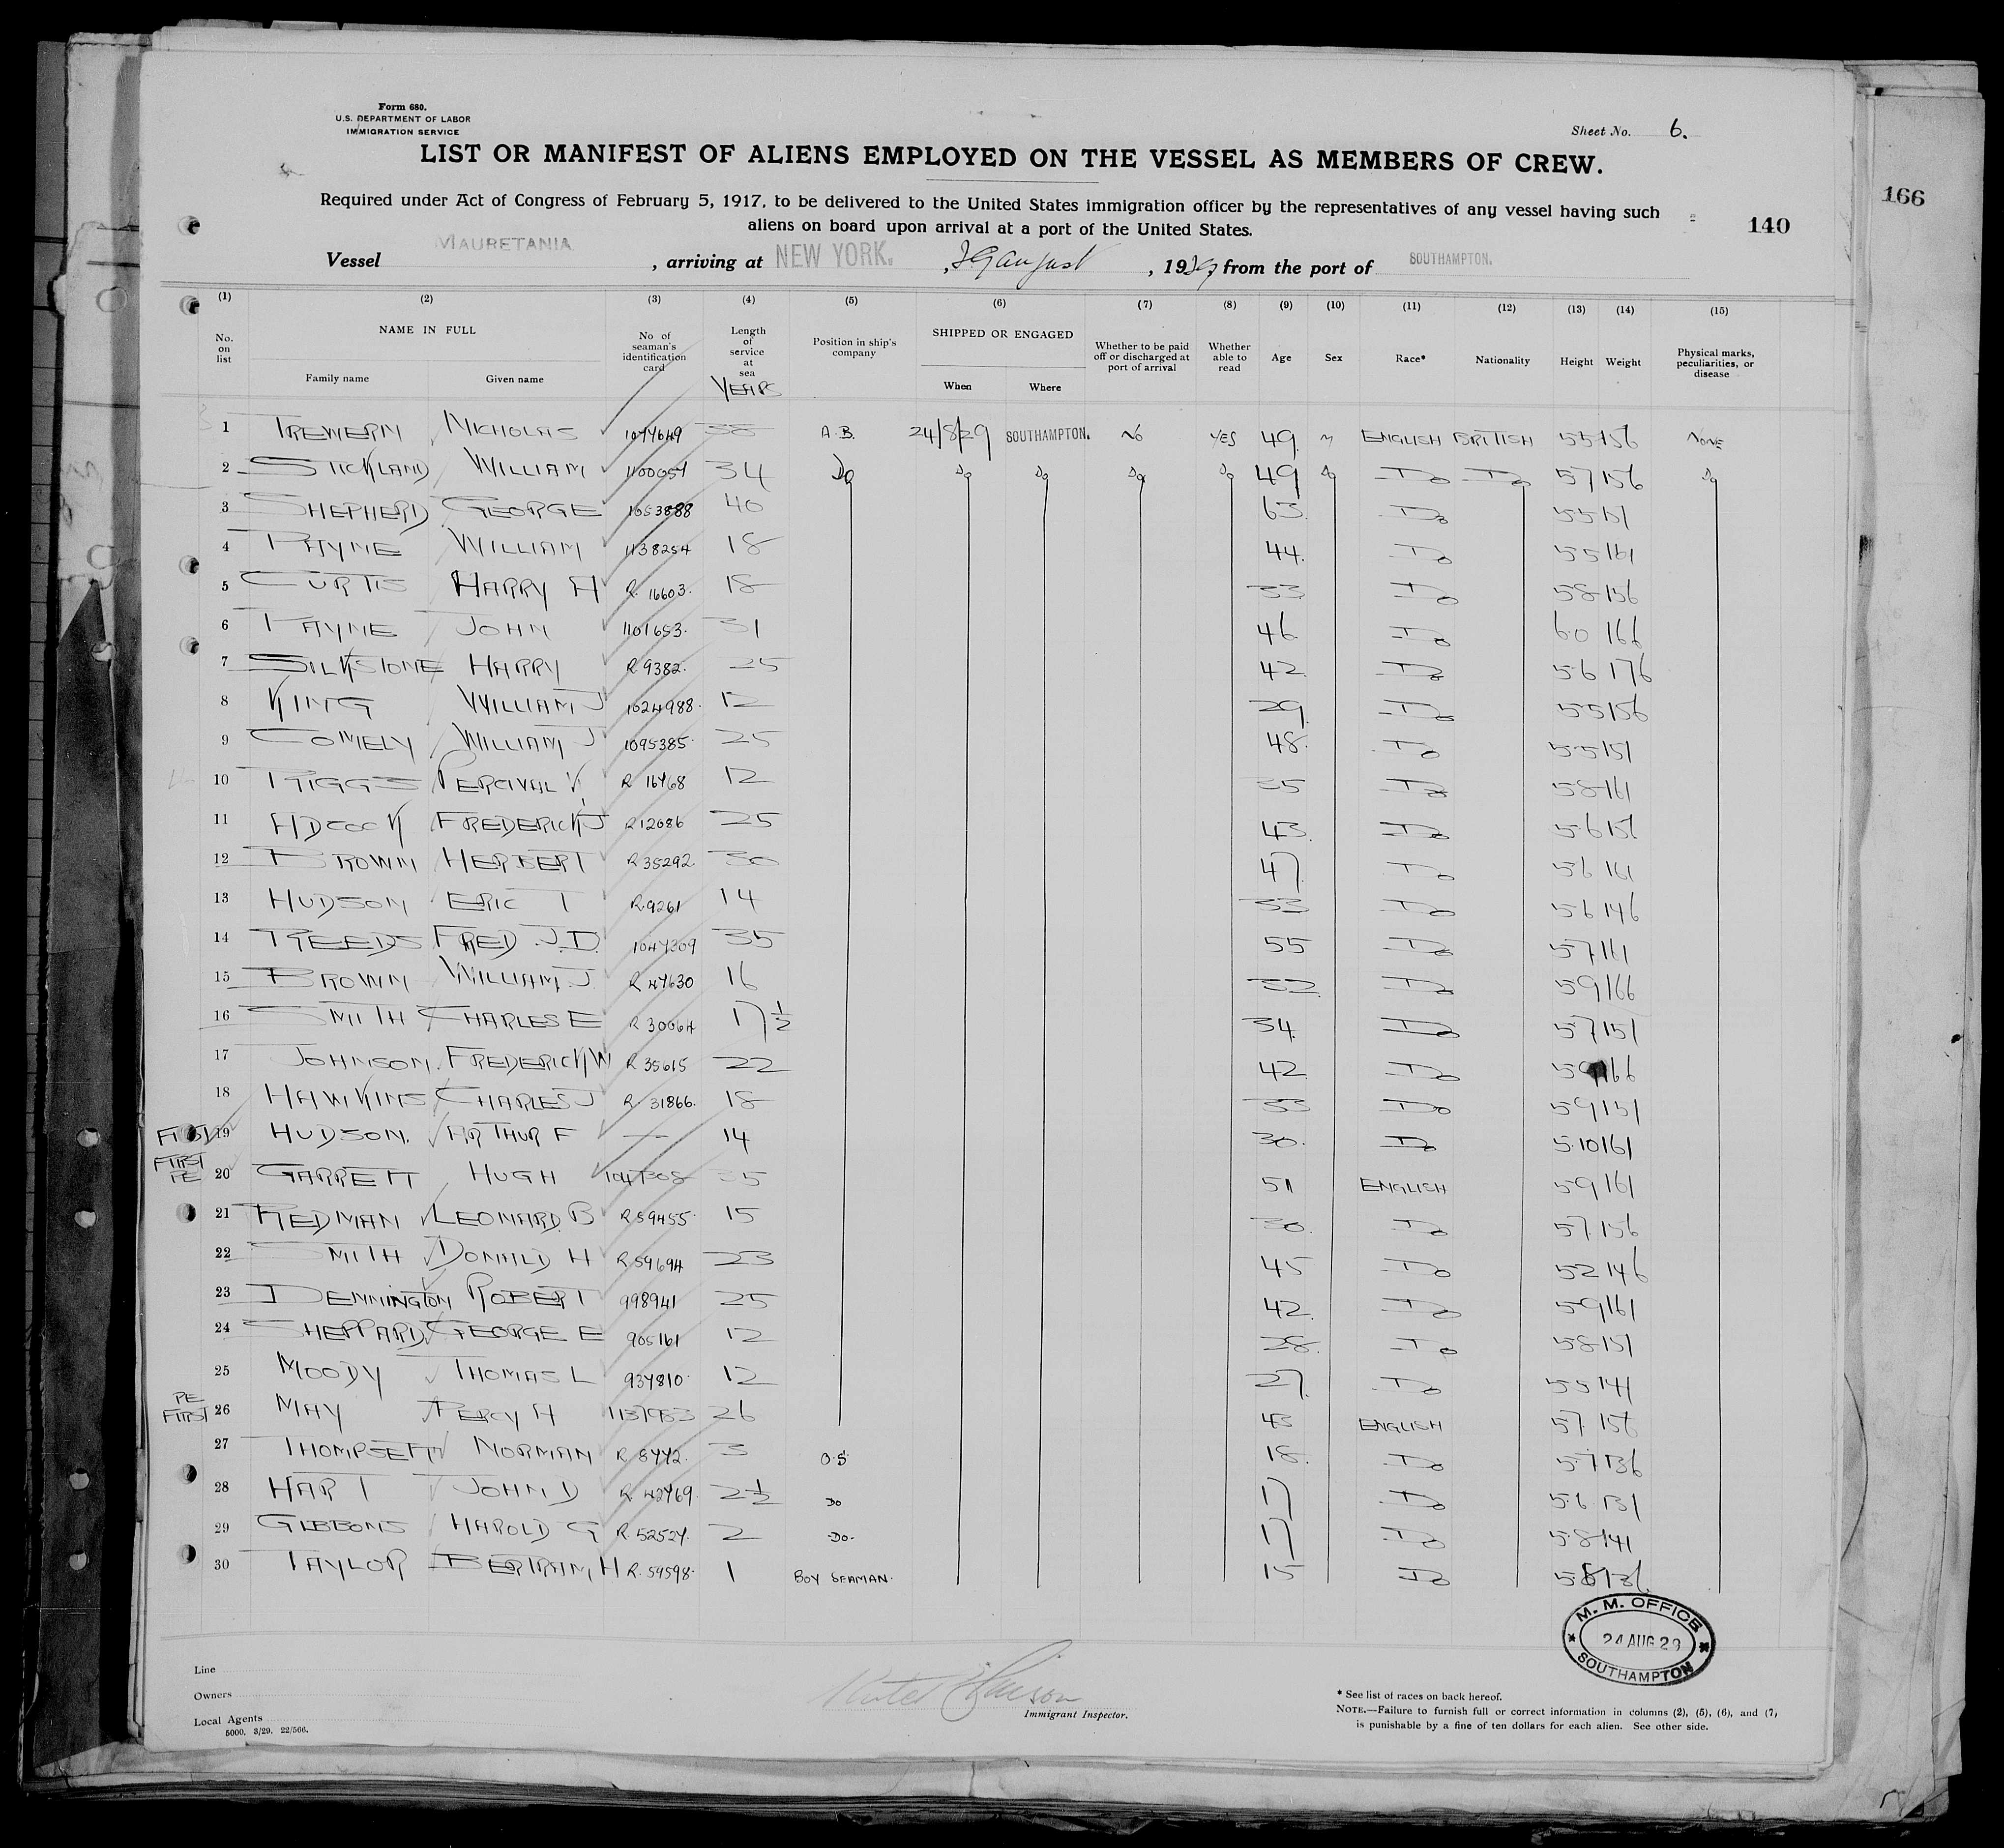 Form 680.
U.S. DEPARTMENT OF LABOR
IMMIGRATION SERVICE
Sheet No. 6.
LIST OR MANIFEST OF ALIENS EMPLOYED ON THE VESSEL AS MEMBERS OF CREW.
166
Required under Act of Congress of February 5, 1917, to be delivered to the United States immigration officer by the representatives of any vessel having such
aliens on board upon arrival at a port of the United States.
140
Vessel MAURETANIA, arriving at NEW YORK. August, 1929, from the port of SOUTHAMPTON.
(1) (2) (3) (4) (5) (6) (7) (8) (9) (10) (11) (12) (13) (14) (15)
No. on list NAME IN FULL Family name Given name No of seaman's identification card Length of service at sea YEARS Position in ship's company SHIPPED OR ENGAGED When Where Whether to be paid off or discharged at port of arrival Whether able to read Age Sex Race* Nationality Height Weight Physical marks, peculiarities, or disease
1 TREWERN NICHOLAS 1077649 A.B. 24/8/29 SOUTHAMPTON. No YES 49 M ENGLISH BRITISH 55 156 NONE
2 STICKLAND WILLIAM 34 Do Do Do Do Do 49 Do Do Do 57 156 Do
3 SHEPHERD GEORGE 1053888 40 63 Do 55 151
4 PAYNE WILLIAM 1138254 18 44. Do 55 161
5 CURTIS HARRY H R. 16603. 18 33 Do 58 156
6 PAYNE JOHN 1101653. 31 46 Do 6.0 166
7 SILKSTONE HARRY R.9382. 25 42 Do 5.6 176
8 KING WILLIAM J 1024988. 12 29 Do 55 156
9 COMELY WILLIAM J 1095385. 25 48. Do 5.5 151
10 RIGGS PERCIVAL V. R 16768 12 35 Do 58 161
11 ADCOCK FREDERICK J R12686 25 43. Do 5.6 156
12 BROWN HERBERT R.35292 30 47 Do 56 161
13 HUDSON ERIC T R.9261 14 33 Do 56 146
14 REEDS FRED. J.D. 1047309 35 55 Do 57 161
15 BROWN WILLIAM. J. R 47630 16 32 Do 59 166
16 SMITH CHARLES E R 30064 17 1/2 34. Do 57 151
17 JOHNSON. FREDERICK W R 35615 22 42 Do 59 166
18 HAWKINS CHARLES J R. 31866. 18 33 Do 59 151
FIRST 19 HUDSON. ARTHUR F — 14 30. Do 5.10 161
FIRST PE 20 GARRETT HUGH 1047308 35 51 ENGLISH 59 161
21 REDMAN LEONARD. B R59455. 15 30. Do 57. 156
22 SMITH DONALD H R 59694 23 45 Do 52 146
23 DENNINGTON ROBERT 998941 25 42. Do 59 161
24 SHEPPARD GEORGE E 905161 12 28. Do 58 151
25 MOODY THOMAS L 937810. 12 27. Do 55 141
PE FIRST 26 MAY PERCY H 26 43 ENGLISH 57. 156
27 THOMPSETT NORMAN R 8772. 3 O.S. 18. Do 57 136
28 HART JOHN D R 42769. 2 1/2 Do 17 Do 5.6 131
29 GIBBONS HAROLD G R. 52527. 2 Do. 17 Do 5.8 141
30 TAYLOR BERTRAM H R. 59598. 1 BOY SEAMAN. 15 Do
M. M. OFFICE
24 AUG 29
SOUTHAMPTON
Line
Owners
Local Agents
5000. 3/29. 22/566.
Immigrant Inspector.
* See list of races on back hereof.
NOTE.—Failure to furnish full or correct information in columns (2), (5), (6), and (7)
is punishable by a fine of ten dollars for each alien. See other side.